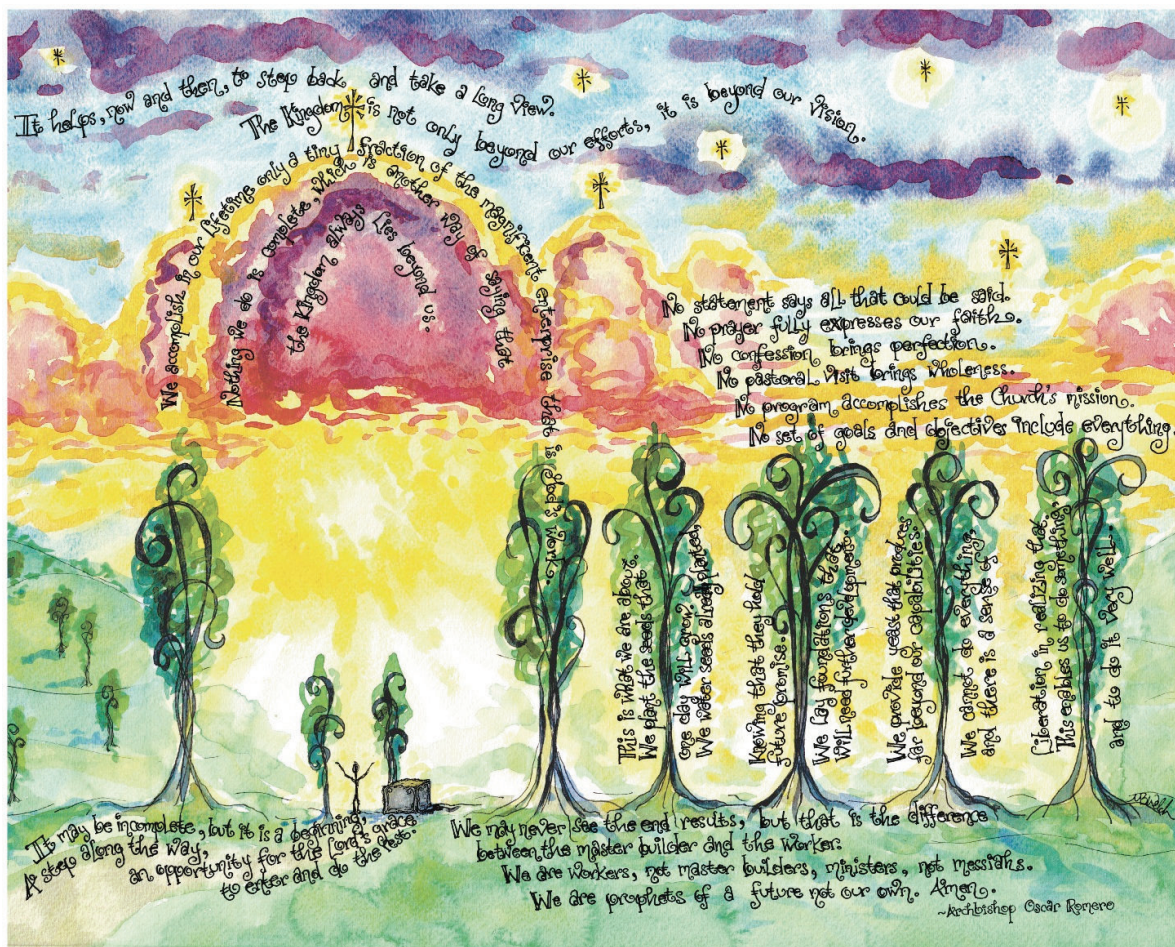 It helps, now and then, to step back and take a long view.
The Kingdom is not only beyond our efforts, it is beyond our vision.
We accomplish in our lifetime only a tiny fraction of the magnificent enterprise that is God's work.
Nothing we do is complete, which is another way of saying that
the Kingdom always lies beyond us.
No statement says all that could be said.
No prayer fully expresses our faith.
No confession brings perfection.
No pastoral visit brings wholeness.
No program accomplishes the Church's mission.
No set of goals and objectives include everything.
This is what we are about.
We plant the seeds that
one day will grow.
We water seeds already planted,
Knowing that they hold
future promise.
We lay foundations that
will need further development.
We provide yeast that produces
far beyond our capabilities.
We cannot do everything,
and there is a sense of
Liberation in realizing that.
This enables us to do something,
and to do it very well.
It may be incomplete, but it is a beginning,
A step along the way,
an opportunity for the Lord's grace
to enter and do the rest.
We may never see the end results, but that is the difference
between the master builder and the worker.
We are workers, not master builders, ministers, not messiahs.
We are prophets of a future not our own. Amen.
~Archbishop Oscar Romero